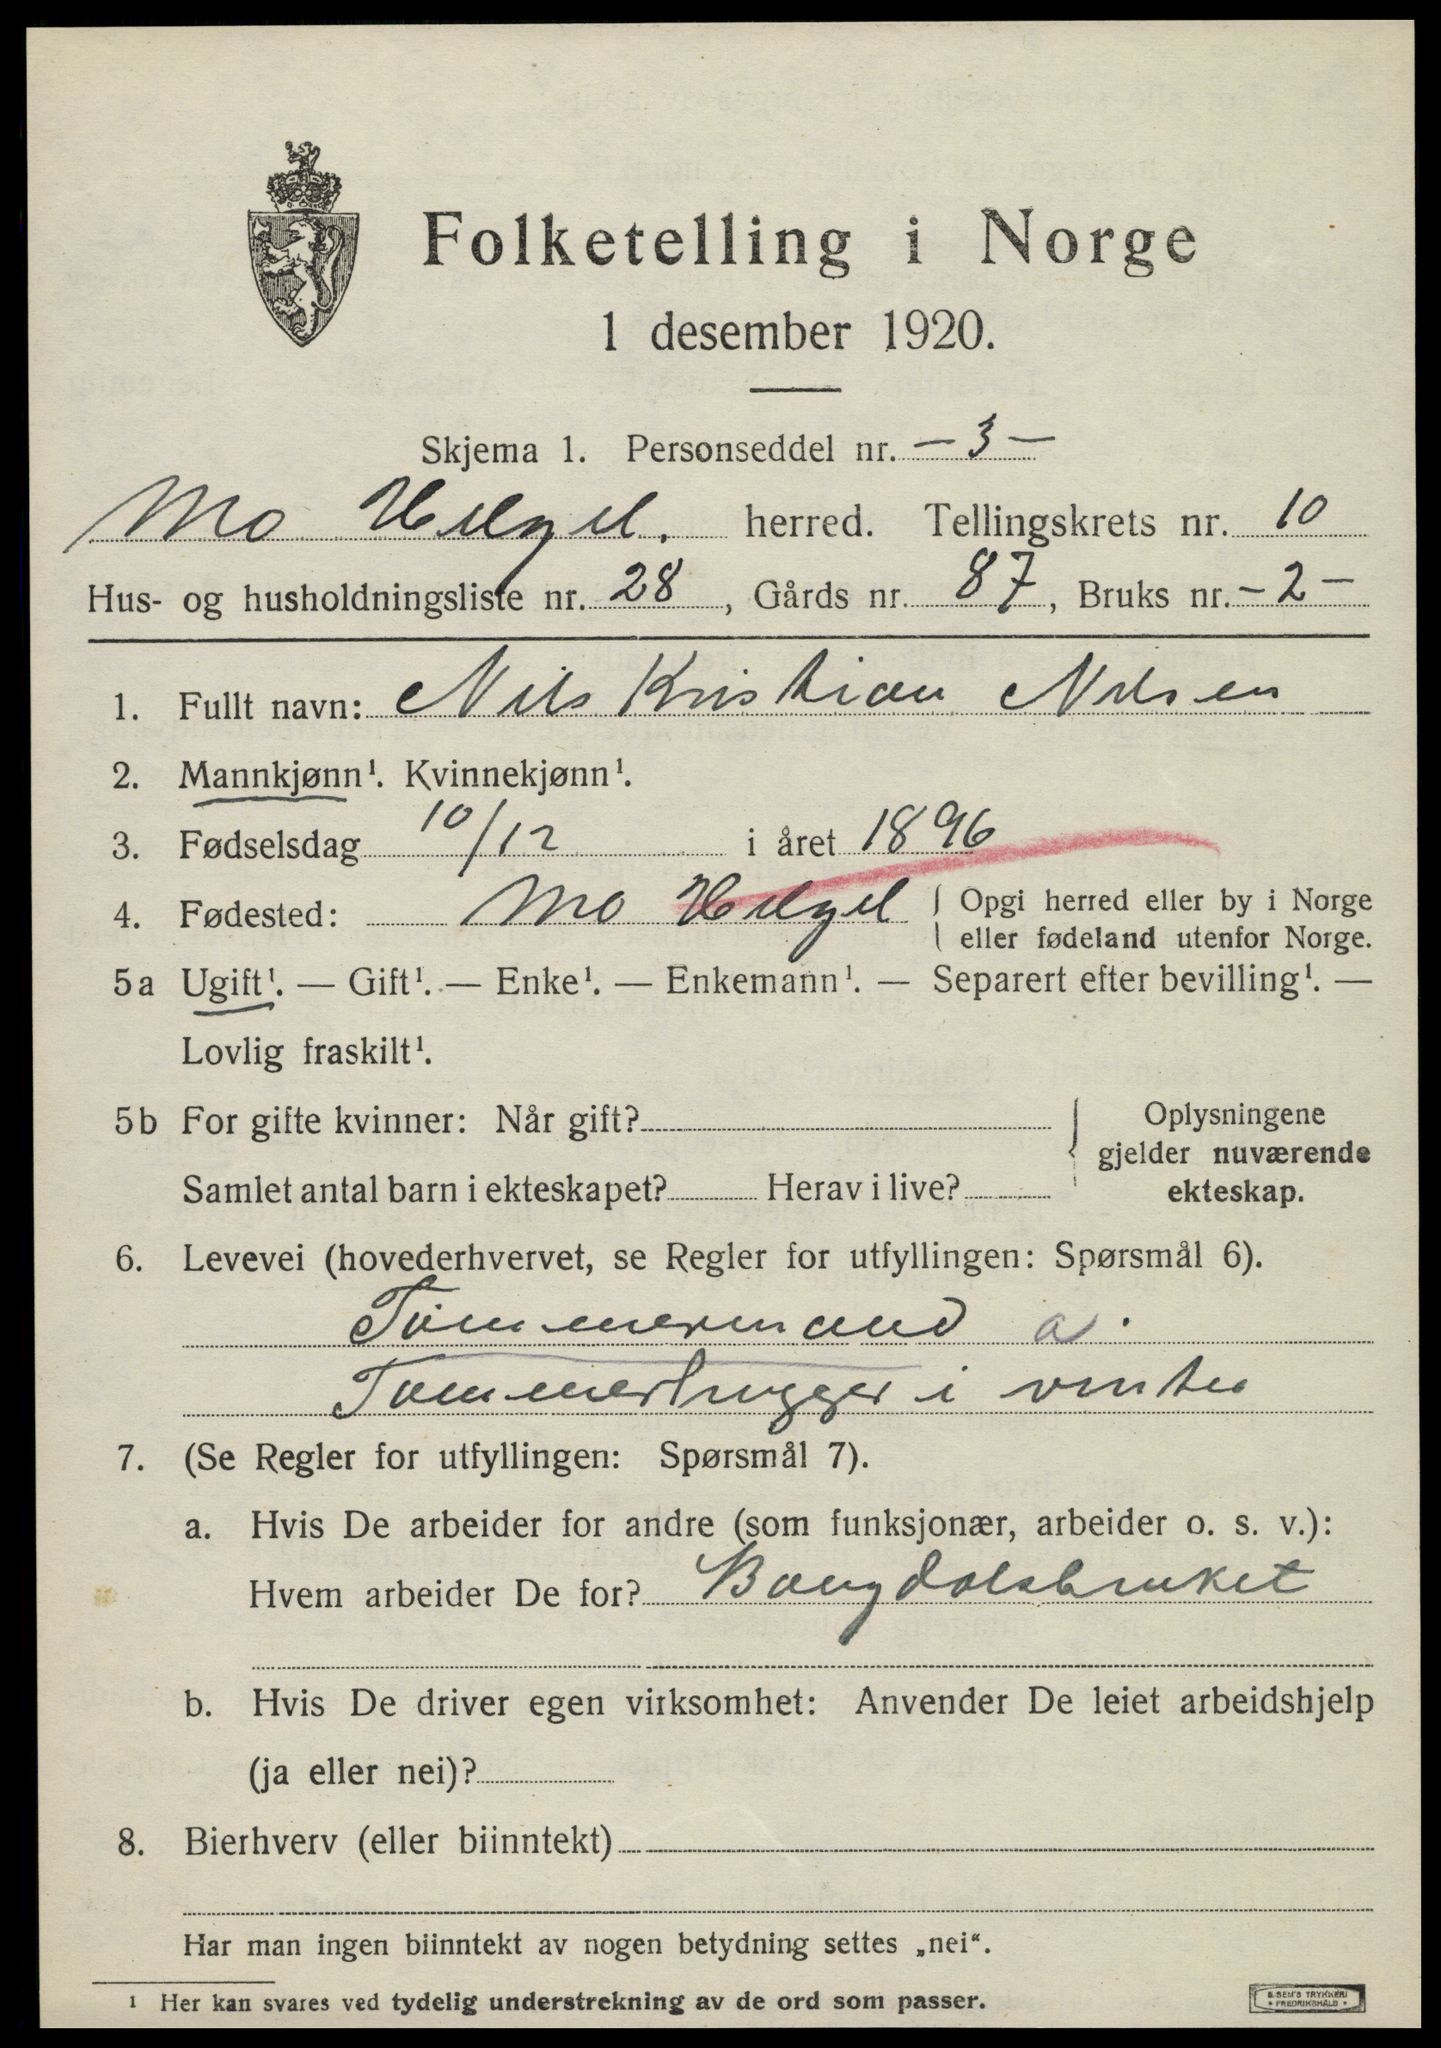 Folketelling i Norge
1 desember 1920.
Skjema 1. Personseddel nr. — 3 —
Mo Helgel. herred. Tellingskrets nr. 10
Hus- og husholdningsliste nr. 28, Gårds nr. 87, Bruks nr. — 2 —
1. Fullt navn: Nils Kristian Nilsen
2. Mannkjønn¹. Kvinnekjønn¹.
3. Fødselsdag 10/12 i året 1896
4. Fødested: Mo Helgel { Opgi herred eller by i Norge
eller fødeland utenfor Norge.
5a Ugift¹. — Gift¹. — Enke¹. — Enkemann¹. — Separert efter bevilling¹. —
Lovlig fraskilt¹.
5b For gifte kvinner: Når gift?
Samlet antal barn i ekteskapet? Herav i live?
{ Oplysningene
gjelder nuværende
ekteskap.
6. Levevei (hovederhvervet, se Regler for utfyllingen: Spørsmål 6).
Tømmermand a.
Tømmerhugger i vinter
7. (Se Regler for utfyllingen: Spørsmål 7).
a. Hvis De arbeider for andre (som funksjonær, arbeider o. s. v.):
Hvem arbeider De for? Bangdalsbruket
b. Hvis De driver egen virksomhet: Anvender De leiet arbeidshjelp
(ja eller nei)?
8. Bierhverv (eller biinntekt)
Har man ingen biinntekt av nogen betydning settes „nei“.
¹ Her kan svares ved tydelig understrekning av de ord som passer.
E. SEM'S TRYKKERI
• FREDRIKSHALD •